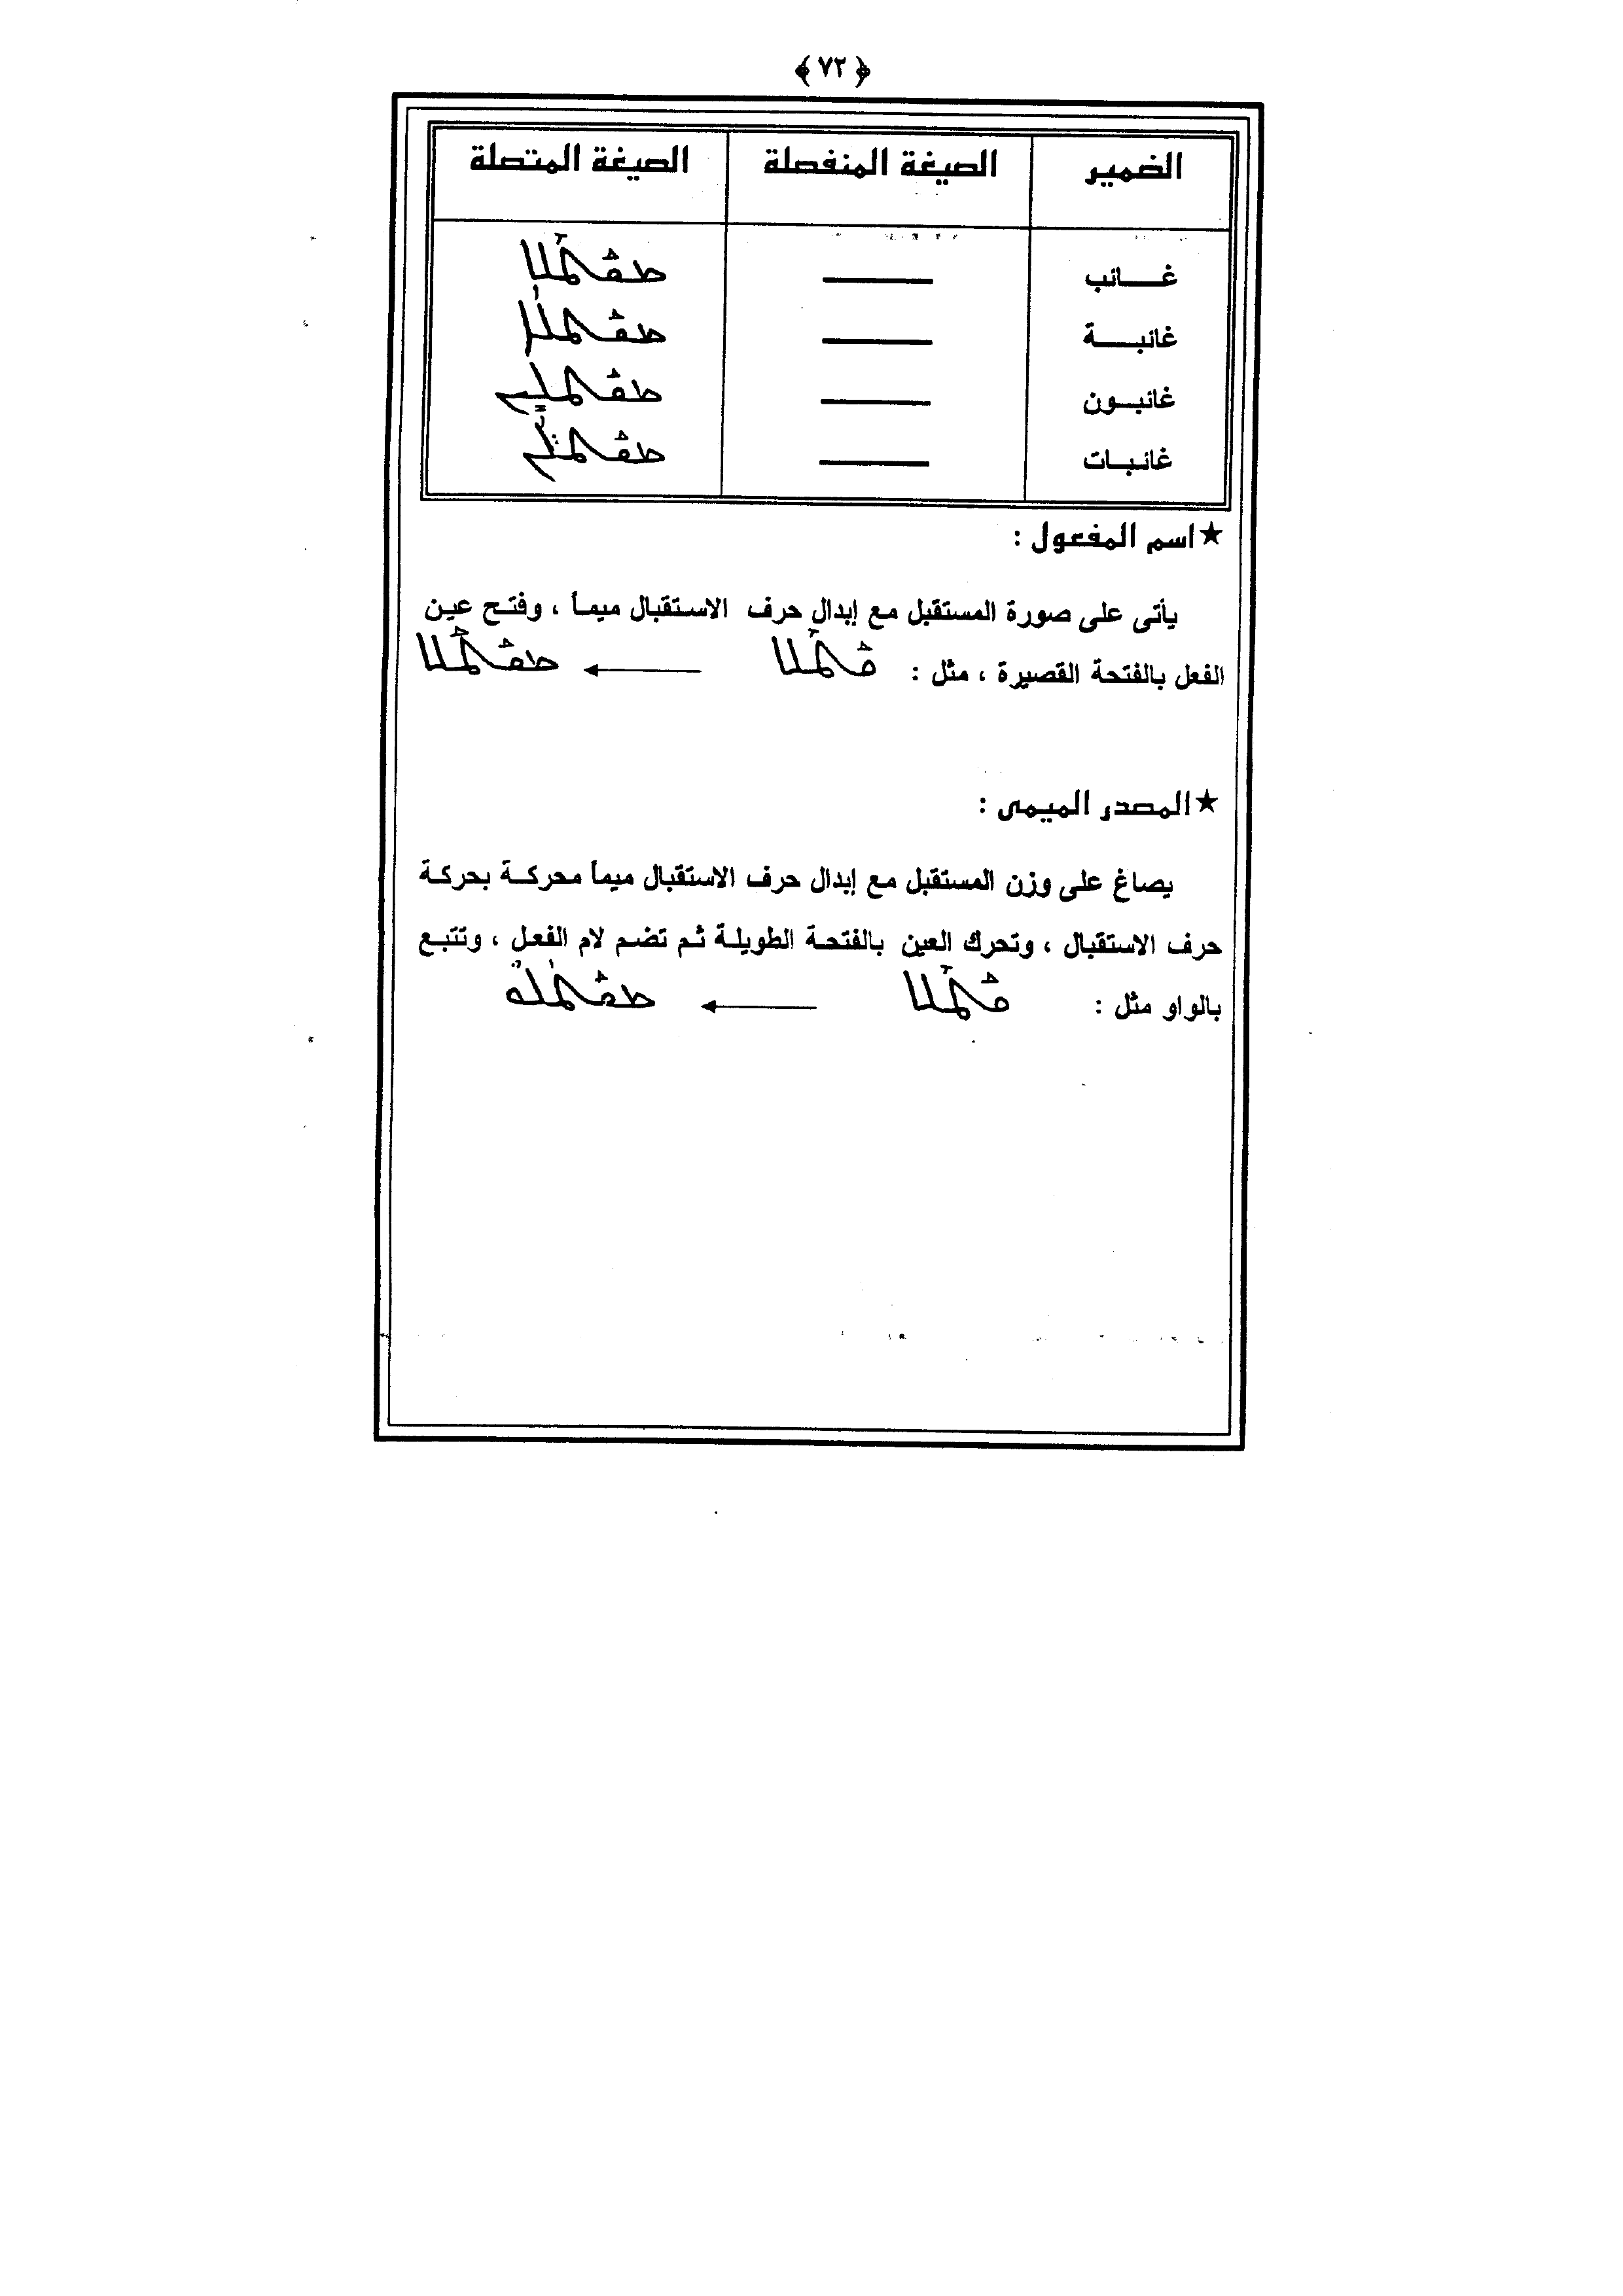 ﴿٧٢﴾
الضمير الصيغة المنفصلة الصيغة المتصلة
غائب ــــــ ܡܩܰܛܶܠ
غائبة ــــــ ܡܩܰܛܠܳܐ
غائبون ــــــ ܡܩܰܛܠܺܝܢ
غائبات ــــــ ܡܩܰܛ̈ܠܳܢ
★ اسم المفعول :
يأتى على صورة المستقبل مع إبدال حرف الاستقبال ميماً ، وفتح عين
الفعل بالفتحة القصيرة ، مثل : ܩܰܛܶܠ ← ܡܩܰܛܰܠ
★ المصدر الميمى :
يصاغ على وزن المستقبل مع إبدال حرف الاستقبال ميماً محركة بحركة
حرف الاستقبال ، وتحرك العين بالفتحة الطويلة ثم تضم لام الفعل ، وتتبع
بالواو مثل : ܩܰܛܶܠ ← ܡܩܰܛܳܠܽܘ